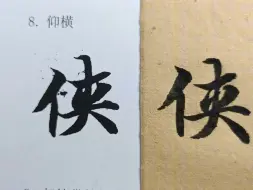 8. 仰横
侠 侠